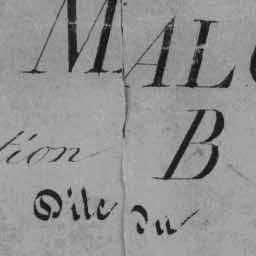 MAL
tion B
D'ile du